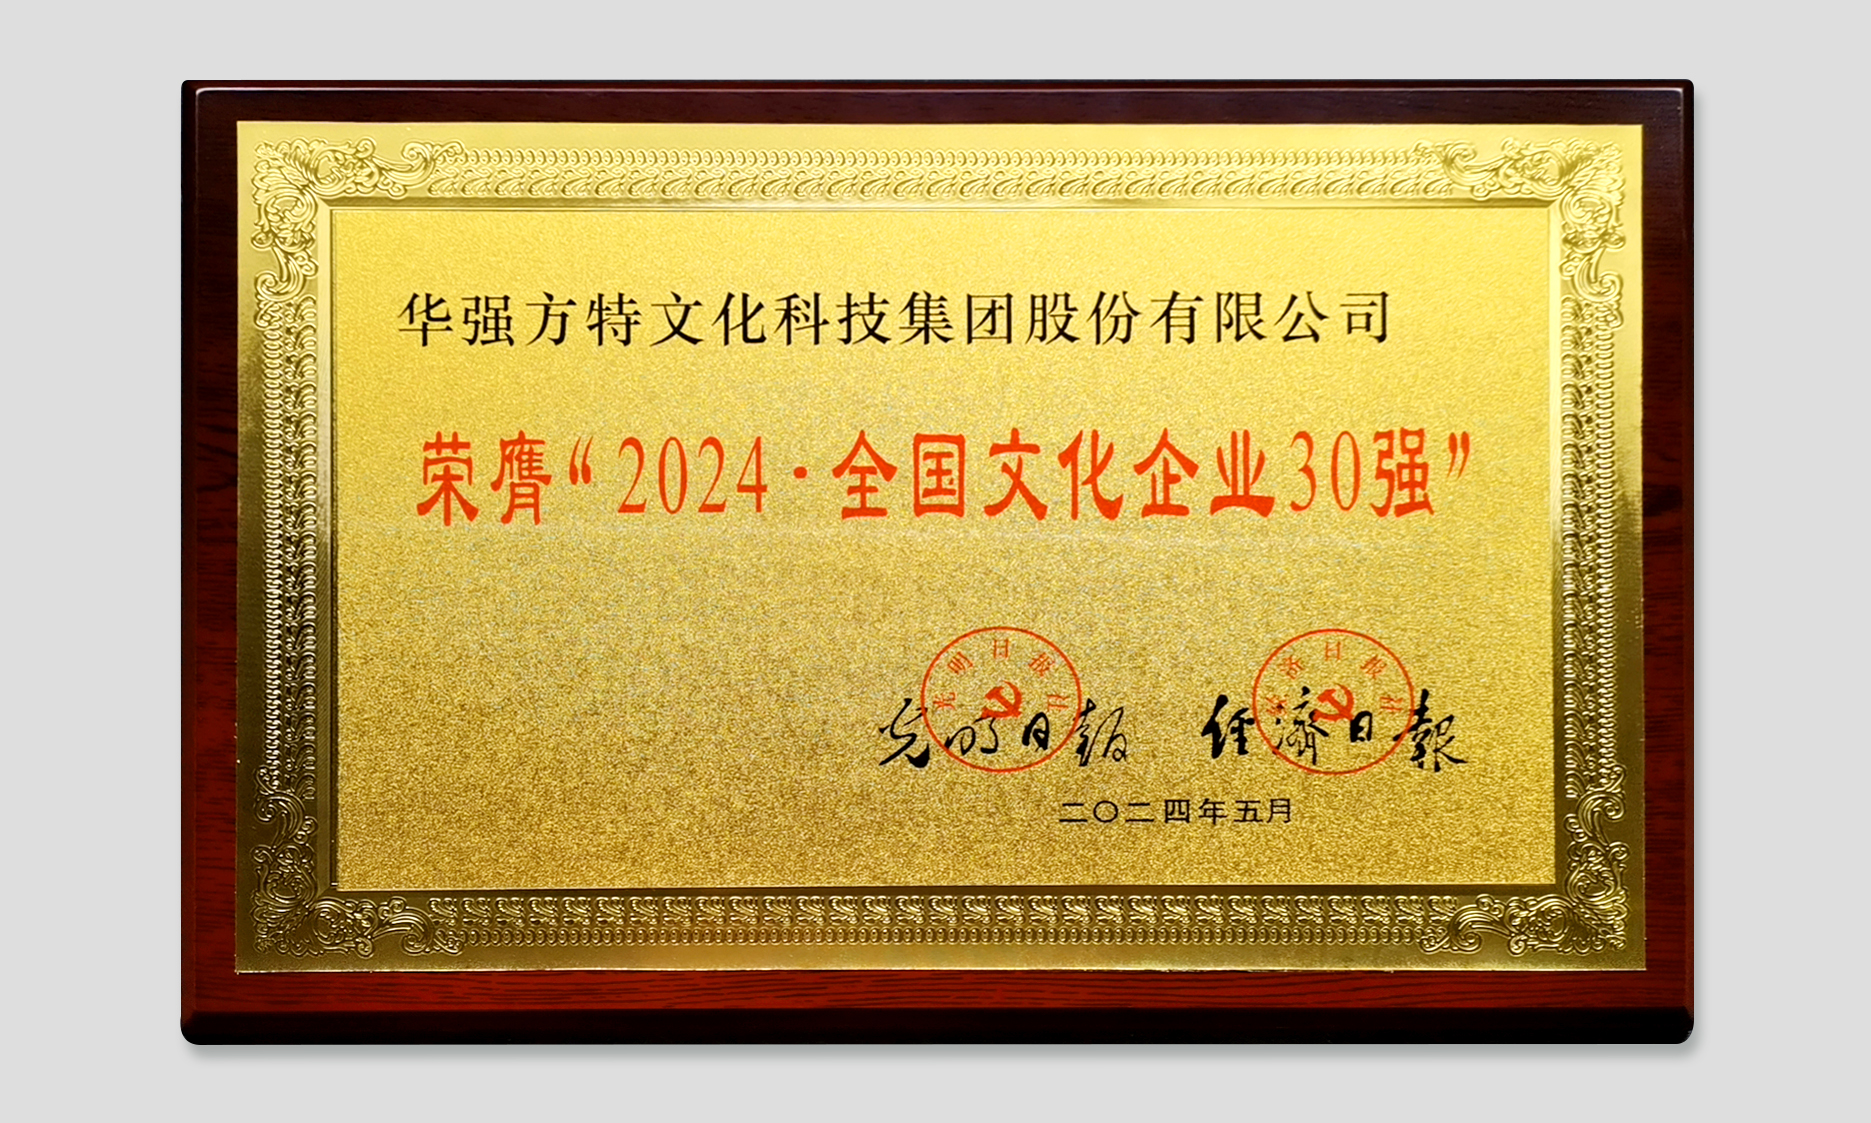 华强方特文化科技集团股份有限公司
荣膺“2024·全国文化企业30强”
光明日报社
经济日报社
光明日报
经濟日報
二〇二四年五月